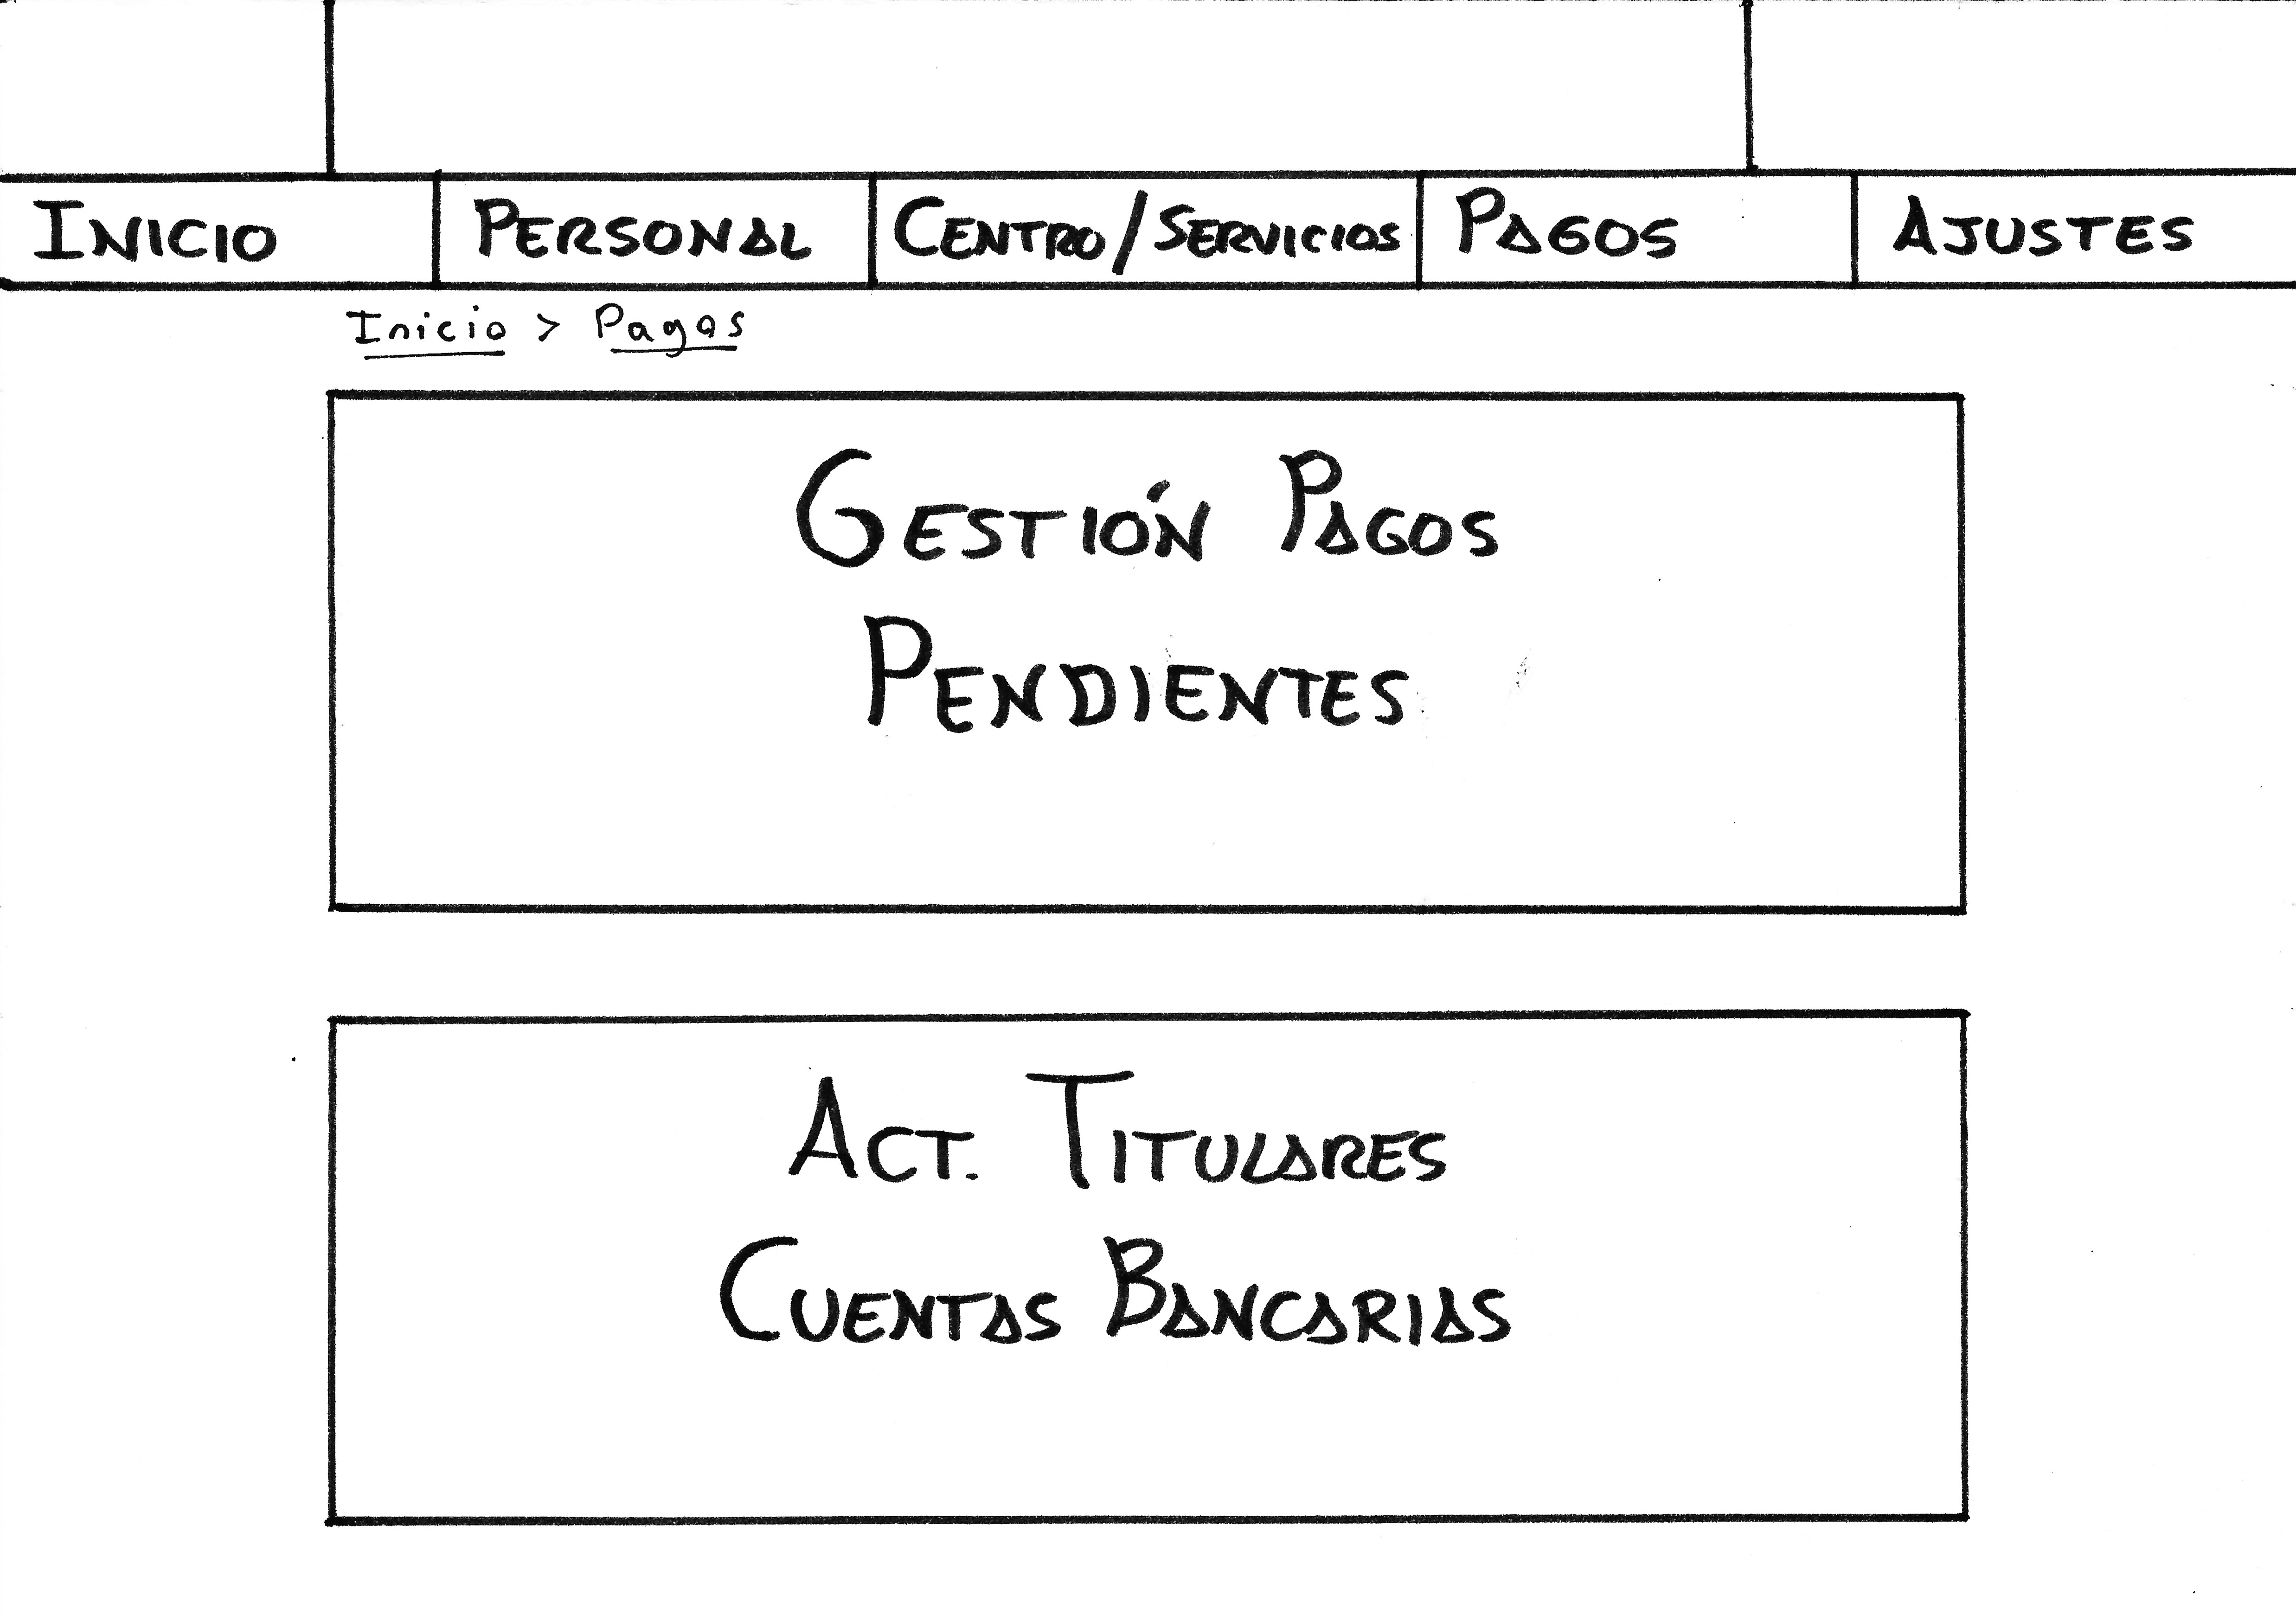 INICIO PERSONAL CENTRO/SERVICIOS PAGOS AJUSTES
Inicio > Pagos
GESTIÓN PAGOS
PENDIENTES
ACT. TITULARES
CUENTAS BANCARIAS